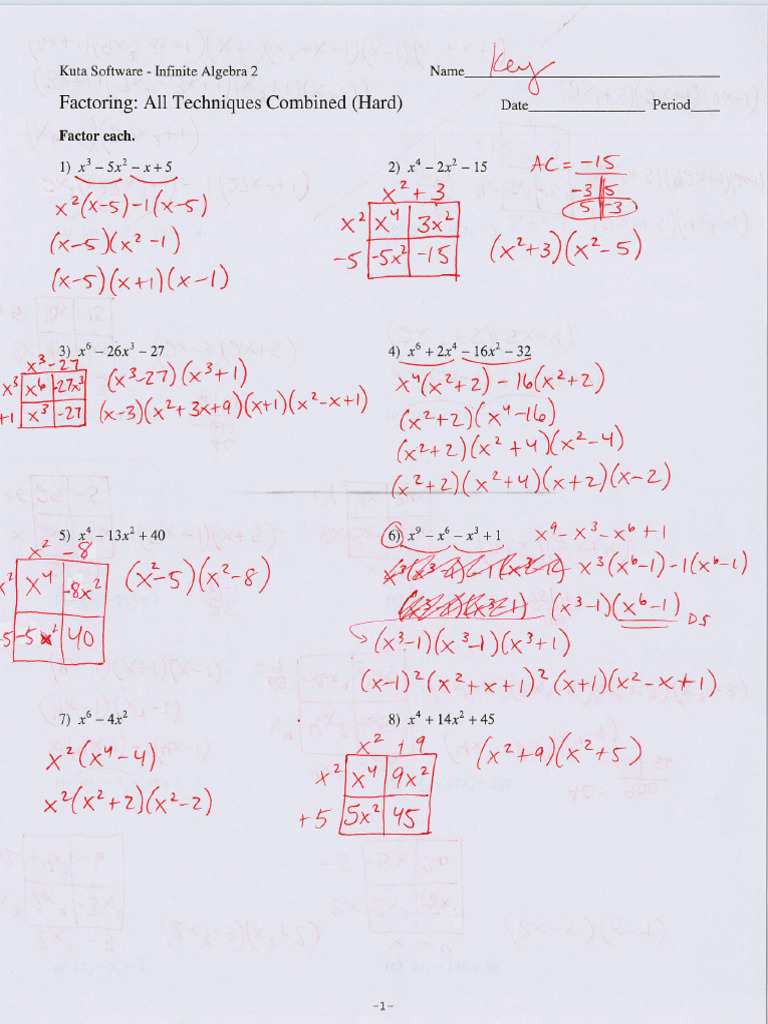 Kuta Software - Infinite Algebra 2
Name Key
Factoring: All Techniques Combined (Hard)
Date Period
Factor each.
1) x³ – 5x² – x + 5
x²(x-5)-1(x-5)
(x-5)(x²-1)
(x-5)(x+1)(x-1)
2) x⁴ – 2x² – 15
AC = -15
-3 5
5 -3
x² + 3
x² x⁴ 3x²
-5 -5x² -15
(x²+3)(x²-5)
3) x⁶ – 26x³ – 27
x³-27
x³ x⁶ -27x³
+1 x³ -27
(x³-27)(x³+1)
(x-3)(x²+3x+9)(x+1)(x²-x+1)
4) x⁶ + 2x⁴ – 16x² – 32
x⁴(x²+2) - 16(x²+2)
(x²+2)(x⁴-16)
(x²+2)(x²+4)(x²-4)
(x²+2)(x²+4)(x+2)(x-2)
5) x⁴ – 13x² + 40
x² -8
x² x⁴ -8x²
-5 -5x² 40
(x²-5)(x²-8)
6) x⁹ – x⁶ – x³ + 1
x⁹-x³-x⁶+1
x³(x⁶-1)-1(x⁶-1)
(x³-1)(x⁶-1)
DS
(x³-1)(x³-1)(x³+1)
(x-1)²(x²+x+1)²(x+1)(x²-x+1)
7) x⁶ – 4x²
x²(x⁴-4)
x²(x²+2)(x²-2)
8) x⁴ + 14x² + 45
x² +9
x² x⁴ 9x²
+5 5x² 45
(x²+9)(x²+5)
-1-